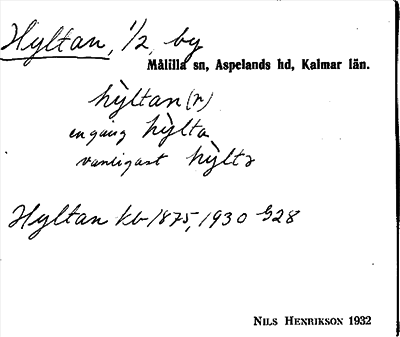 Hyltan, 1/2, by
Målilla sn, Aspelands hd, Kalmar län.
hỳltan(r)
en gång hỳlta
vanligast hỳltɿ
Hyltan kb 1875, 1930 G28
NILS HENRIKSON 1932